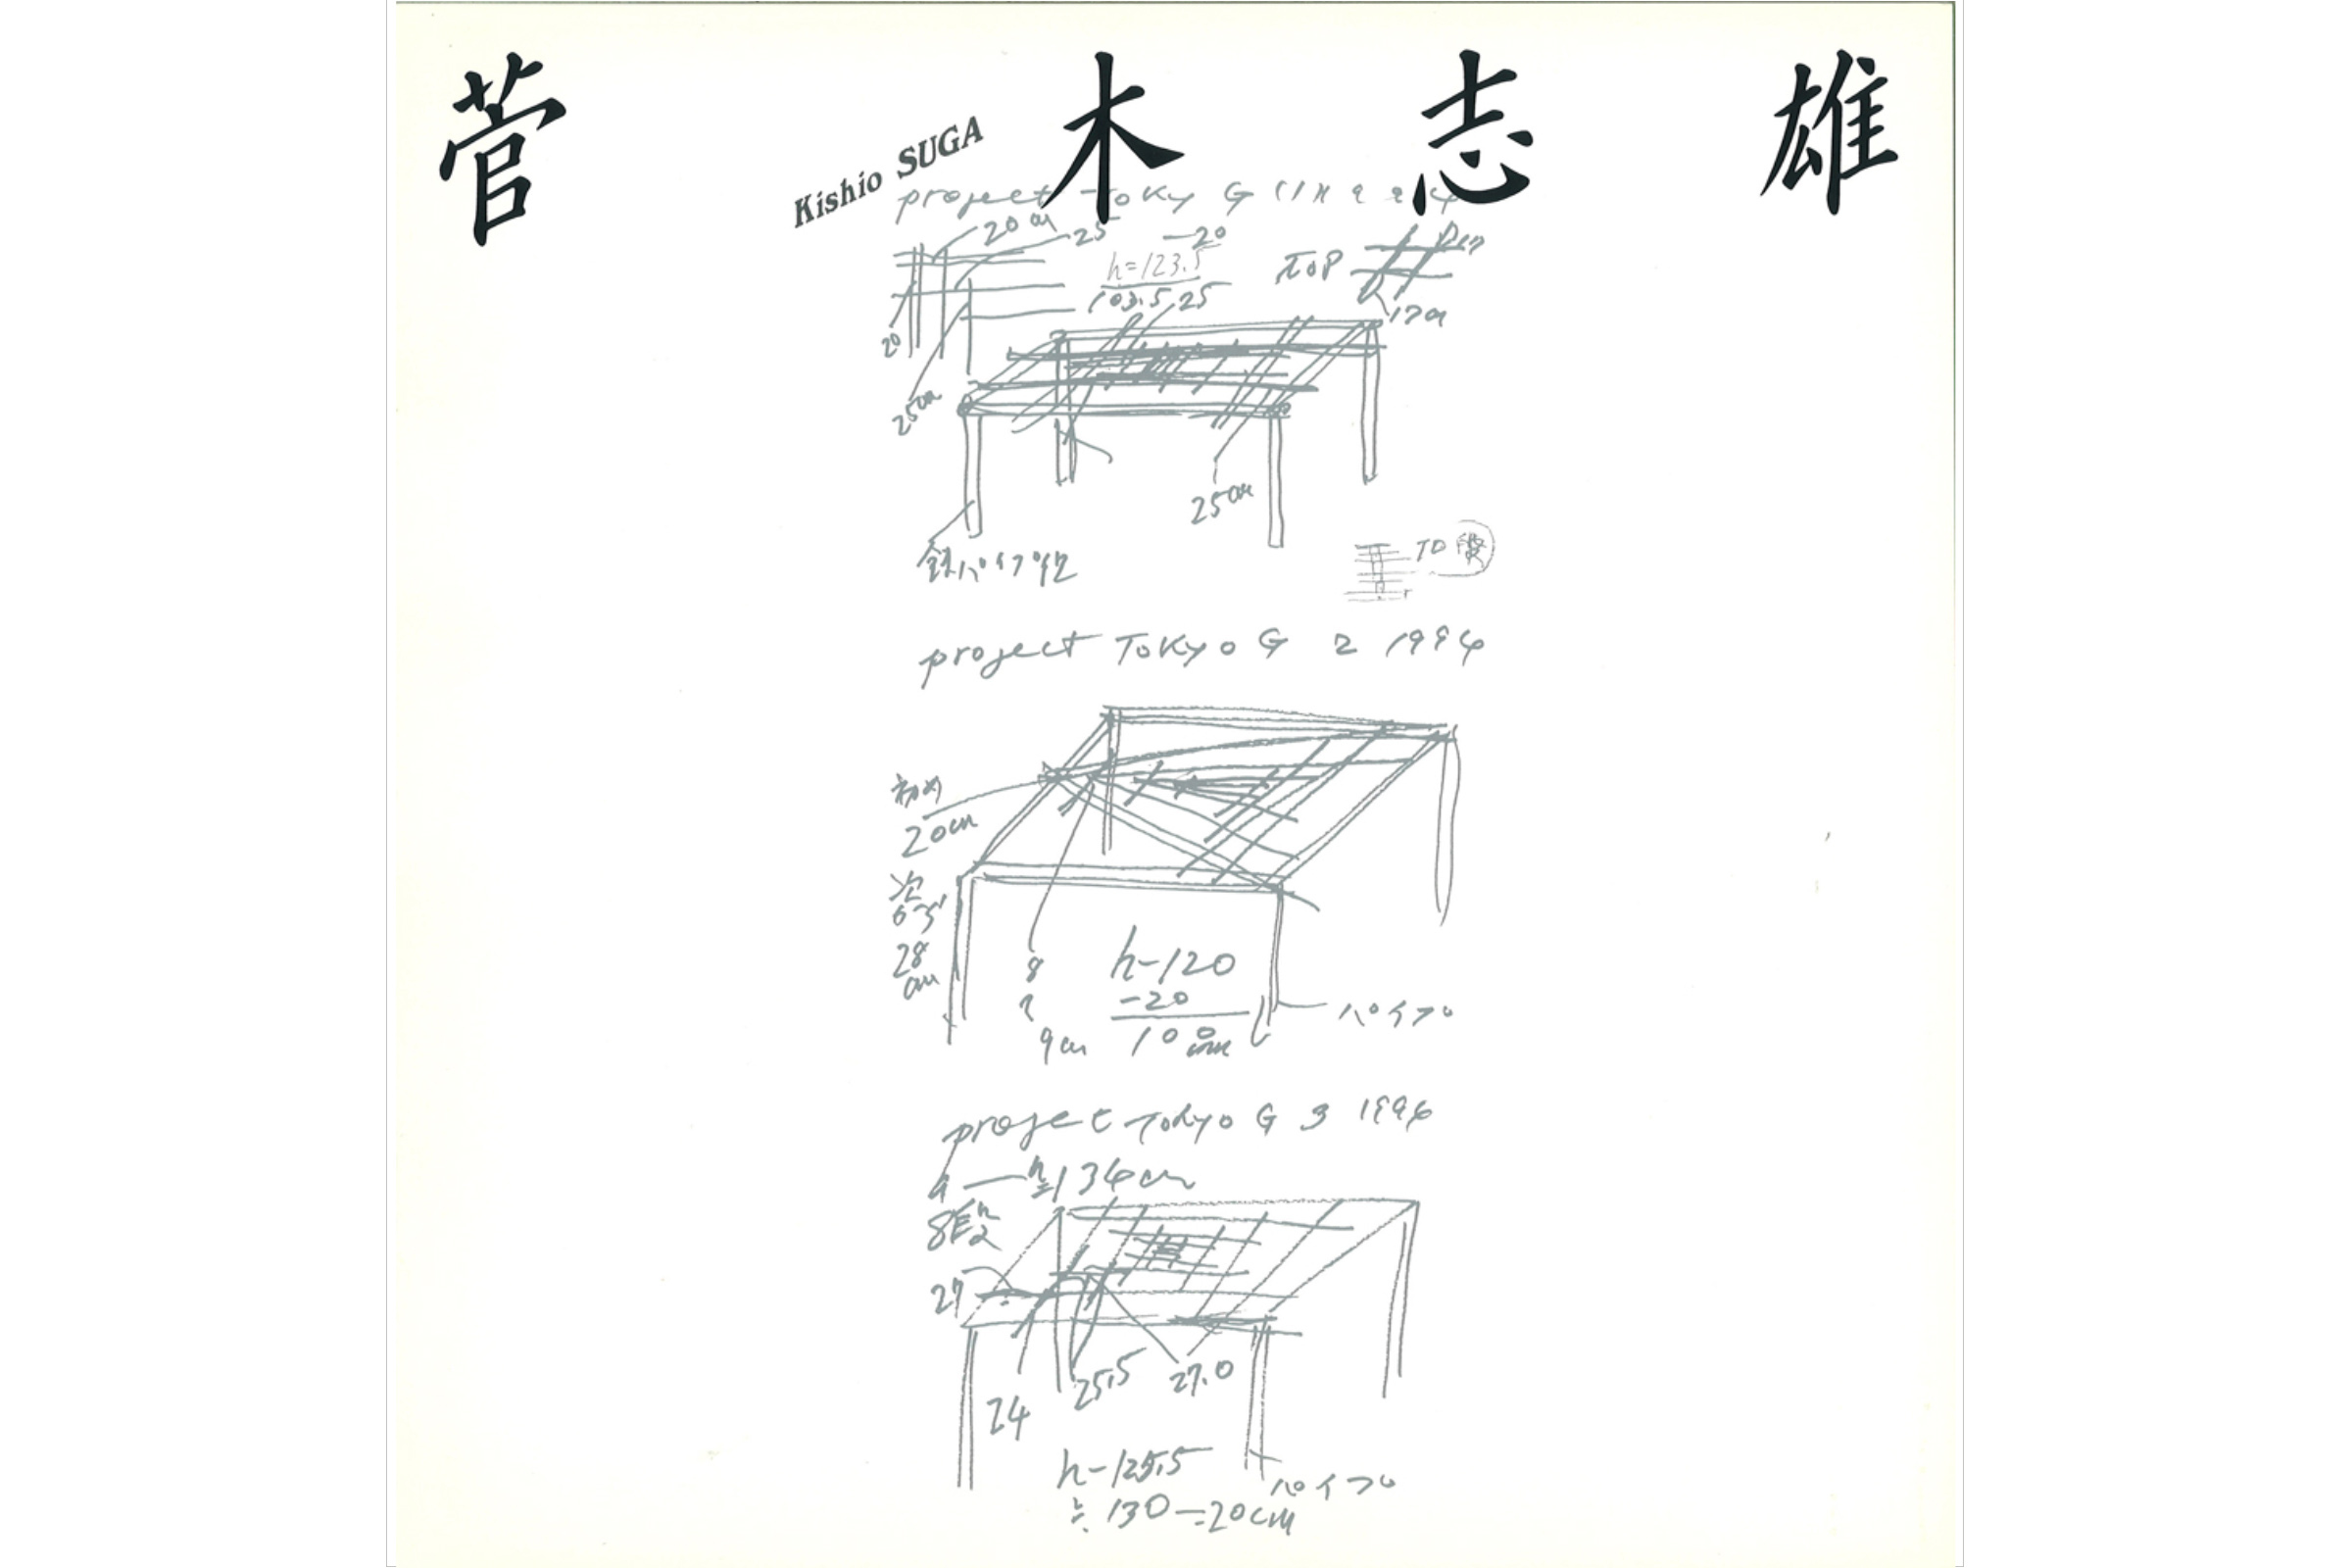 菅木志雄
Kishio SUGA
project Tokyo G (1) 1994
20cm 25 -20
h=123.5
103.5 25
TOP
20
25cm
25cm
鉄パイプ
TO
project TOKYO G 2 1994
初め
20cm
28
cm
8
9cm
h-120
-20
100
パイプ
project Tokyo G 3 1994
h=134cm
27
25.5 27.0
24
h-125.5
パイプ
≒130-20cm